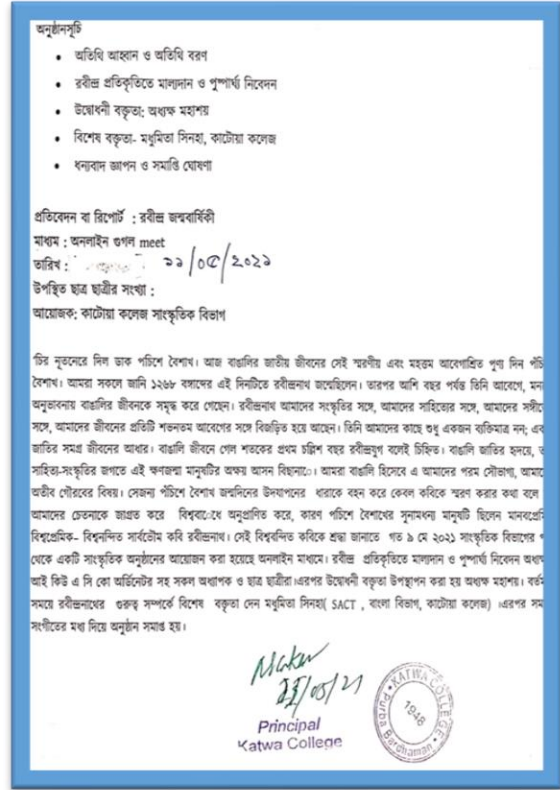 অনুষ্ঠানসূচি
• অতিথি আহ্বান ও অতিথি বরণ
• রবীন্দ্র প্রতিকৃতিতে মাল্যদান ও পুষ্পার্ঘ্য নিবেদন
• উদ্বোধনী বক্তৃতা: অধ্যক্ষ মহাশয়
• বিশেষ বক্তৃতা- মধুমিতা সিনহা, কাটোয়া কলেজ
• ধন্যবাদ জ্ঞাপন ও সমাপ্তি ঘোষণা
প্রতিবেদন বা রিপোর্ট : রবীন্দ্র জন্মবার্ষিকী
মাধ্যম : অনলাইন গুগল meet
তারিখ : ১১/০৫/২০২১
উপস্থিত ছাত্র ছাত্রীর সংখ্যা :
আয়োজক: কাটোয়া কলেজ সাংস্কৃতিক বিভাগ
'চির নূতনেরে দিল ডাক পঁচিশে বৈশাখ। আজ বাঙালির জাতীয় জীবনের সেই স্মরণীয় এবং মহত্তম আবেগাশ্রিত পুণ্য দিন
বৈশাখ। আমরা সকলে জানি ১২৬৮ বঙ্গাব্দের এই দিনটিতে রবীন্দ্রনাথ জন্মেছিলেন। তারপর আশি বছর পর্যন্ত তিনি আবেগে,
অনুভাবনায় বাঙালির জীবনকে সমৃদ্ধ করে গেছেন। রবীন্দ্রনাথ আমাদের সংস্কৃতির সঙ্গে, আমাদের সাহিত্যের সঙ্গে, আমাদের
সঙ্গে, আমাদের জীবনের প্রতিটি শভনতম আবেগের সঙ্গে বিজড়িত হয়ে আছেন। তিনি আমাদের কাছে শুধু একজন ব্যক্তিমাত্র নন;
জাতির সমগ্র জীবনের আধার। বাঙালি জীবনে গেল শতকের প্রথম চল্লিশ বছর রবীন্দ্রযুগ বলেই চিহ্নিত। বাঙালি জাতির হৃদয়ে,
সাহিত্য-সংস্কৃতির জগতে এই ক্ষণজন্মা মানুষটির অক্ষয় আসন আমরা বাঙালি হিসেবে এ আমাদের পরম সৌভাগ্য,
অতীব গৌরবের বিষয়। সেজন্য পঁচিশে বৈশাখ জন্মদিনের উদযাপনের ধারাকে বহন করে কেবল কবিকে স্মরণ করার কথা বলে
আমাদের চেতনাকে জাগ্রত করে অনুপ্রাণিত করে, কারণ পঁচিশে বৈশাখের সুনামধন্য মানুষটি ছিলেন
বিশ্বপ্রেমিক- বিশ্বনন্দিত সার্বভৌম কবি রবীন্দ্রনাথ। সেই বিশ্ববন্দিত কবিকে শ্রদ্ধা জানাতে গত ৯ মে ২০২১ সাংস্কৃতিক বিভাগের
থেকে একটি সাংস্কৃতিক অনুষ্ঠানের আয়োজন করা হয়েছে অনলাইন মাধ্যমে। রবীন্দ্র প্রতিকৃতিতে মাল্যদান ও পুষ্পার্ঘ্য নিবেদন
আই কিউ এ সি কো অর্ডিনেটর সহ সকল অধ্যাপক ও ছাত্র ছাত্রীরা।এরপর উদ্বোধনী বক্তৃতা উপস্থাপন করা হয় অধ্যক্ষ মহাশয়।
সময়ে রবীন্দ্রনাথের গুরুত্ব সম্পর্কে বিশেষ বক্তৃতা দেন মধুমিতা সিনহা( SACT , বাংলা বিভাগ, কাটোয়া কলেজ) ।এরপর
সংগীতের মধ্য দিয়ে অনুষ্ঠান সমাপ্ত হয়।
Principal
Katwa College
KATWA COLLEGE
1948
Purba Bardhaman